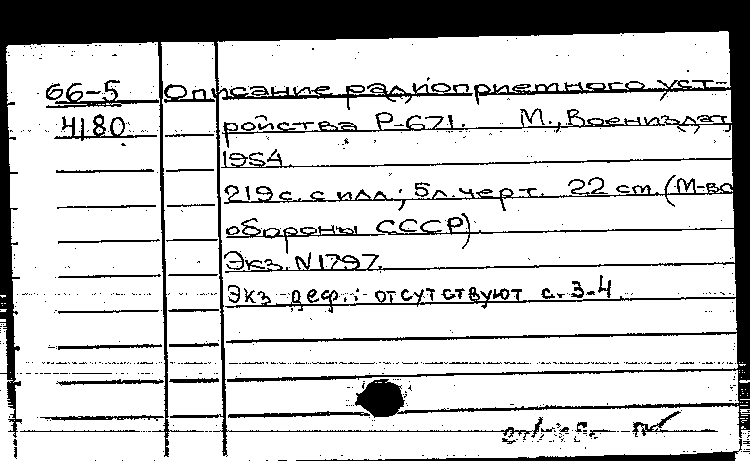 66-5 Описание радиоприемного уст-
4180 ройства Р-671. М., Воениздат,
1954.
219 с. с илл.; 5 л. черт. 22 cm. (М-во
обороны СССР).
Экз. N1797.
Экз. деф.: отсутствуют с. 3-4.